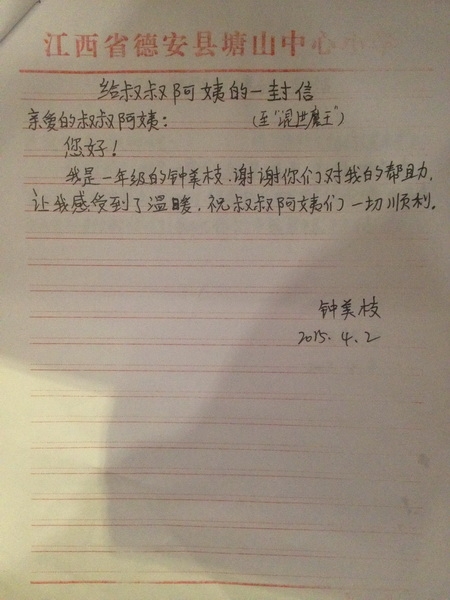 江西省德安县塘山中心
给叔叔阿姨的一封信
亲爱的叔叔阿姨：（至“混世魔王”）
您好！
我是一年级的钟美枝，谢谢你们对我的帮助，
让我感受到了温暖，祝叔叔阿姨们一切顺利。
钟美枝
2015.4.2